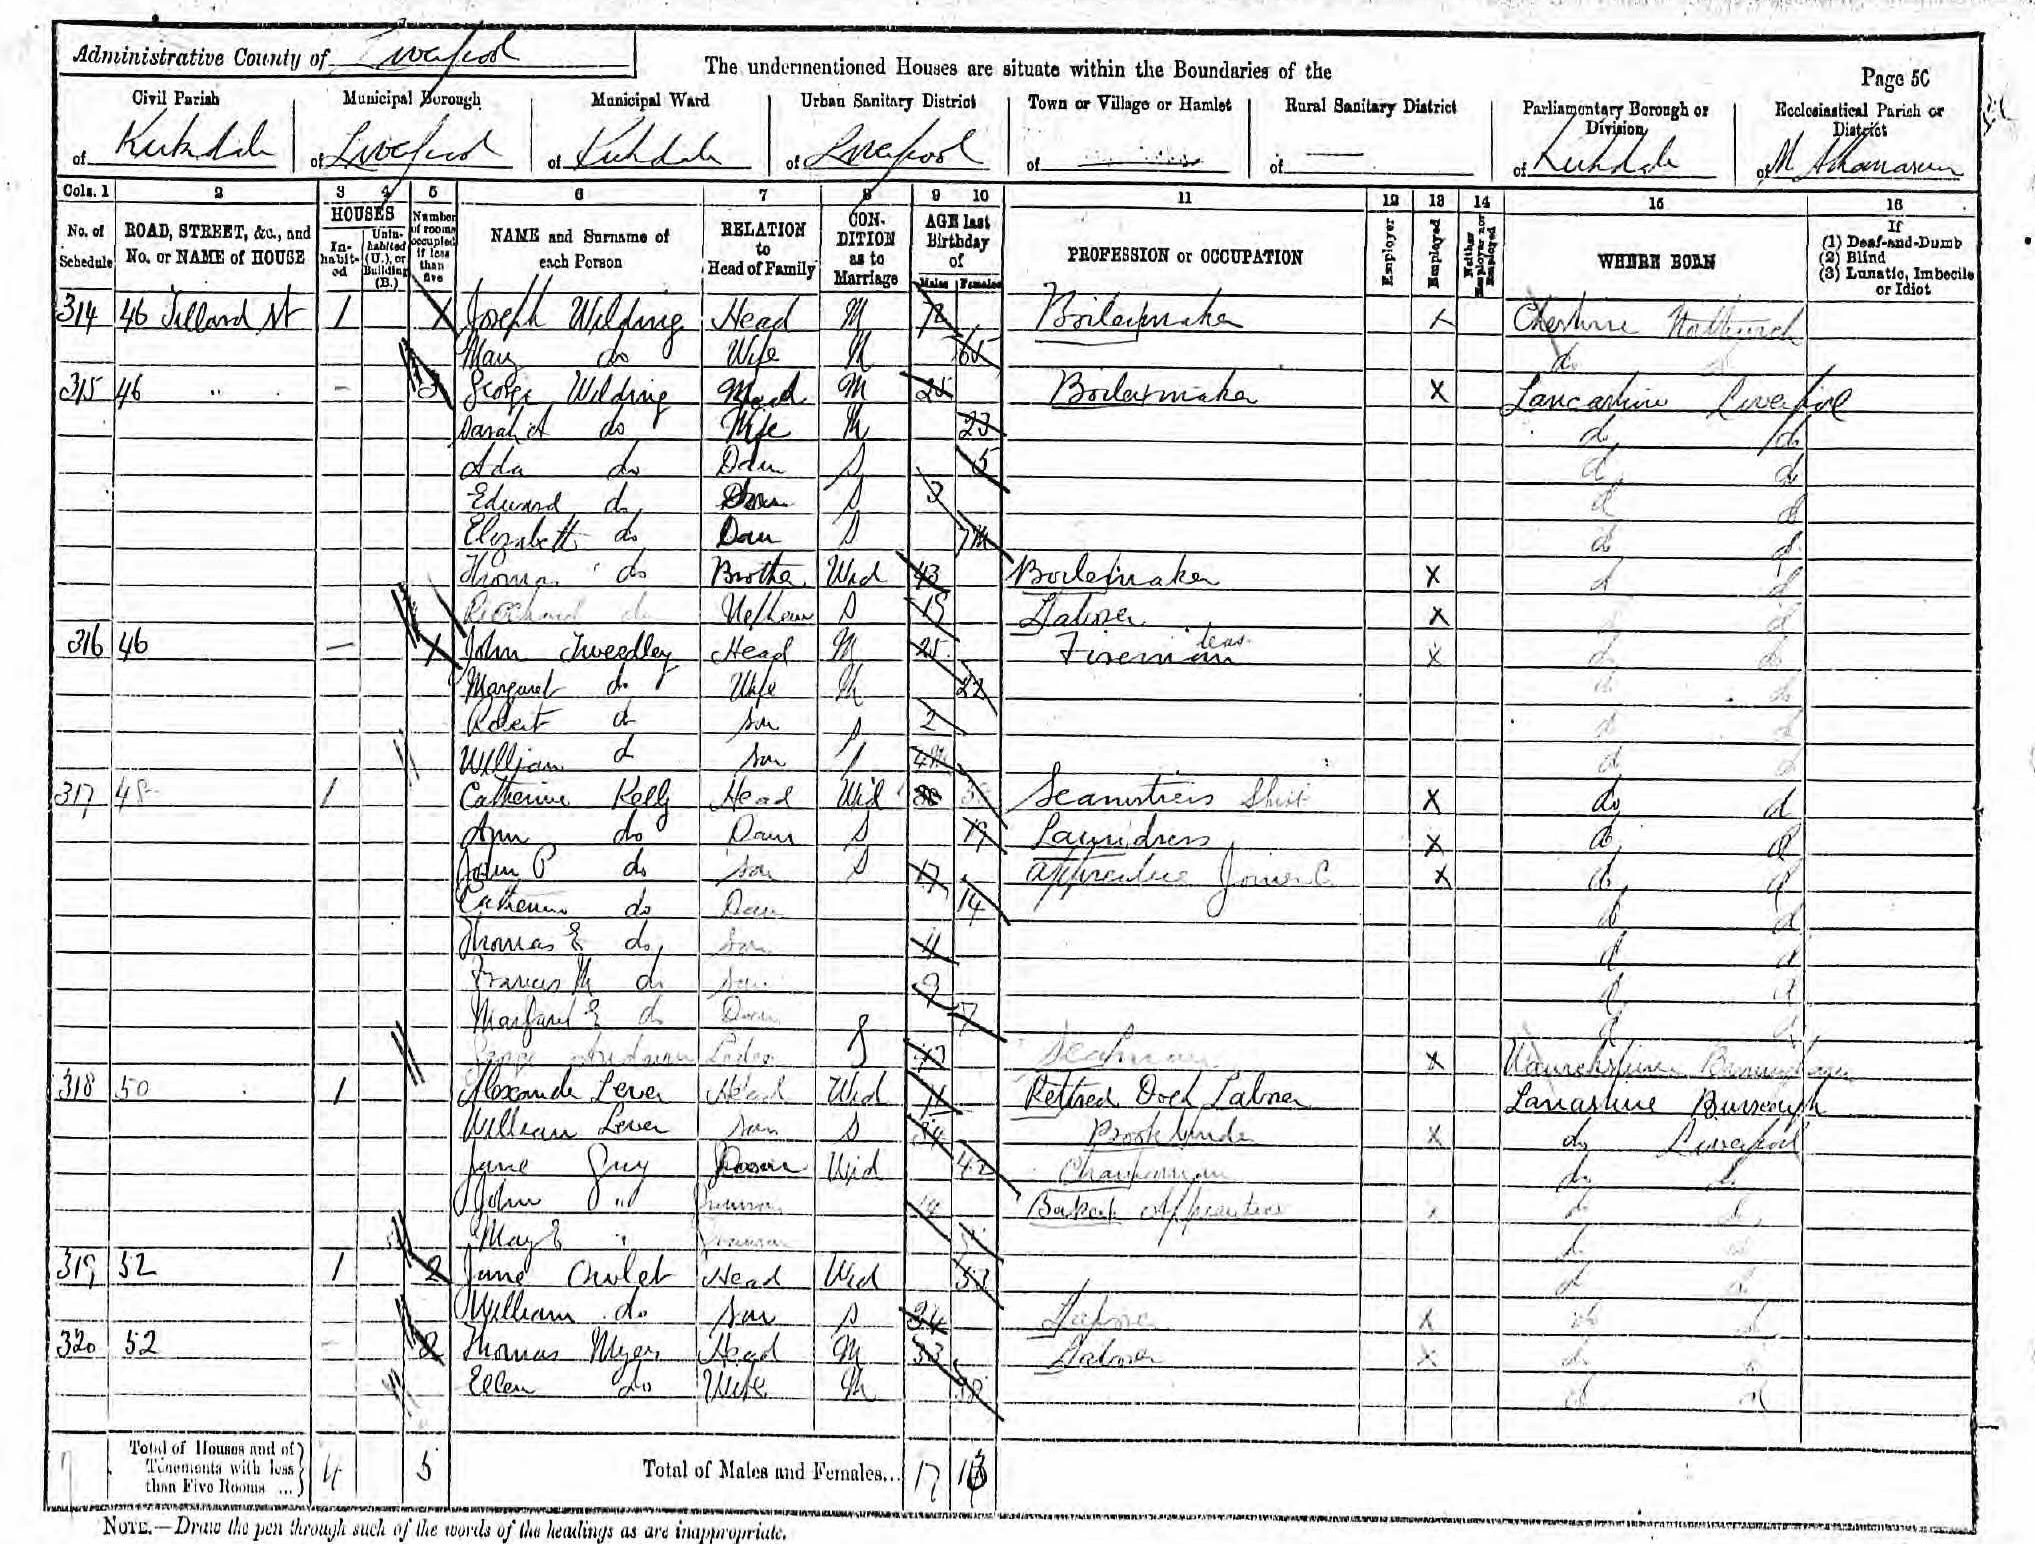 Administrative County of Liverpool
The undermentioned Houses are situate within the Boundaries of the
Page 50
Civil Parish of Kirkdale
Municipal Borough of Liverpool
Municipal Ward of Kirkdale
Urban Sanitary District of Liverpool
Town or Village or Hamlet of
Rural Sanitary District of —
Parliamentary Borough or Division of Kirkdale
Ecclesiastical Parish or District of St Athanasius
Cols. 1 2 3 4 5 6 7 8 9 10 11 12 13 14 15 16
No. of Schedule
ROAD, STREET, &c., and No. or NAME of HOUSE
HOUSES
Inhabited
Uninhabited (U.), or Building (B.)
Number of rooms occupied if less than five
NAME and Surname of each Person
RELATION to Head of Family
CONDITION as to Marriage
AGE last Birthday of
Males Females
PROFESSION or OCCUPATION
Employer
Employed
Neither Employer nor Employed
WHERE BORN
If (1) Deaf-and-Dumb (2) Blind (3) Lunatic, Imbecile or Idiot
314 46 Tillard St 1 1 Joseph Wilding Head M Boilermaker X Cheshire
Mary do Wife M 65 do
315 46 " – 3 George Wilding Head M 25 Boilermaker X Lancashire Liverpool
Sarah A do Wife M 23 do do
Ada do Daur S 5 do do
Edward do Son S 3 d d
Elizabeth do Daur S 7m d d
Thomas do Brother Wid 43 Boilermaker X d d
Richard do Nephew S 19 Labourer X
316 46 – 1 John Tweedley Head M 25 Fireman X d d
Margaret do Wife M 22 d d
Robert d Son S 2 d d
William d Son S 4m d d
317 48 1 Catherine Kelly Head Wid Seamstress Shirt X do d
Ann do Daur S 19 Laundress X d d
John P do Son S 17 Apprentice Joiner X d d
Catherine do Daur 14 d d
Thomas E do Son 11 d d
Francis M do Son 9 d d
Margaret E do Daur 7 d d
George S 47 Seaman X Birmingham
318 50 1 Alexander Lever Head Wid Retired Dock Labourer Lancashire Burscough
William Lever Son S 34 Bookbinder X do Liverpool
Jane Guy Daur Wid 42 Charwoman do d
John " Baker Apprentice d d
May E " d d
319 52 1 2 Jane Head Wid 53 d d
William do Son S 24 Labourer X do d
320 52 – 2 Thomas Myers Head M 33 Labourer X d
Ellen do Wife M d d
Total of Houses and of Tenements with less than Five Rooms ... 4 5
Total of Males and Females... 17
NOTE.—Draw the pen through such of the words of the headings as are inappropriate.